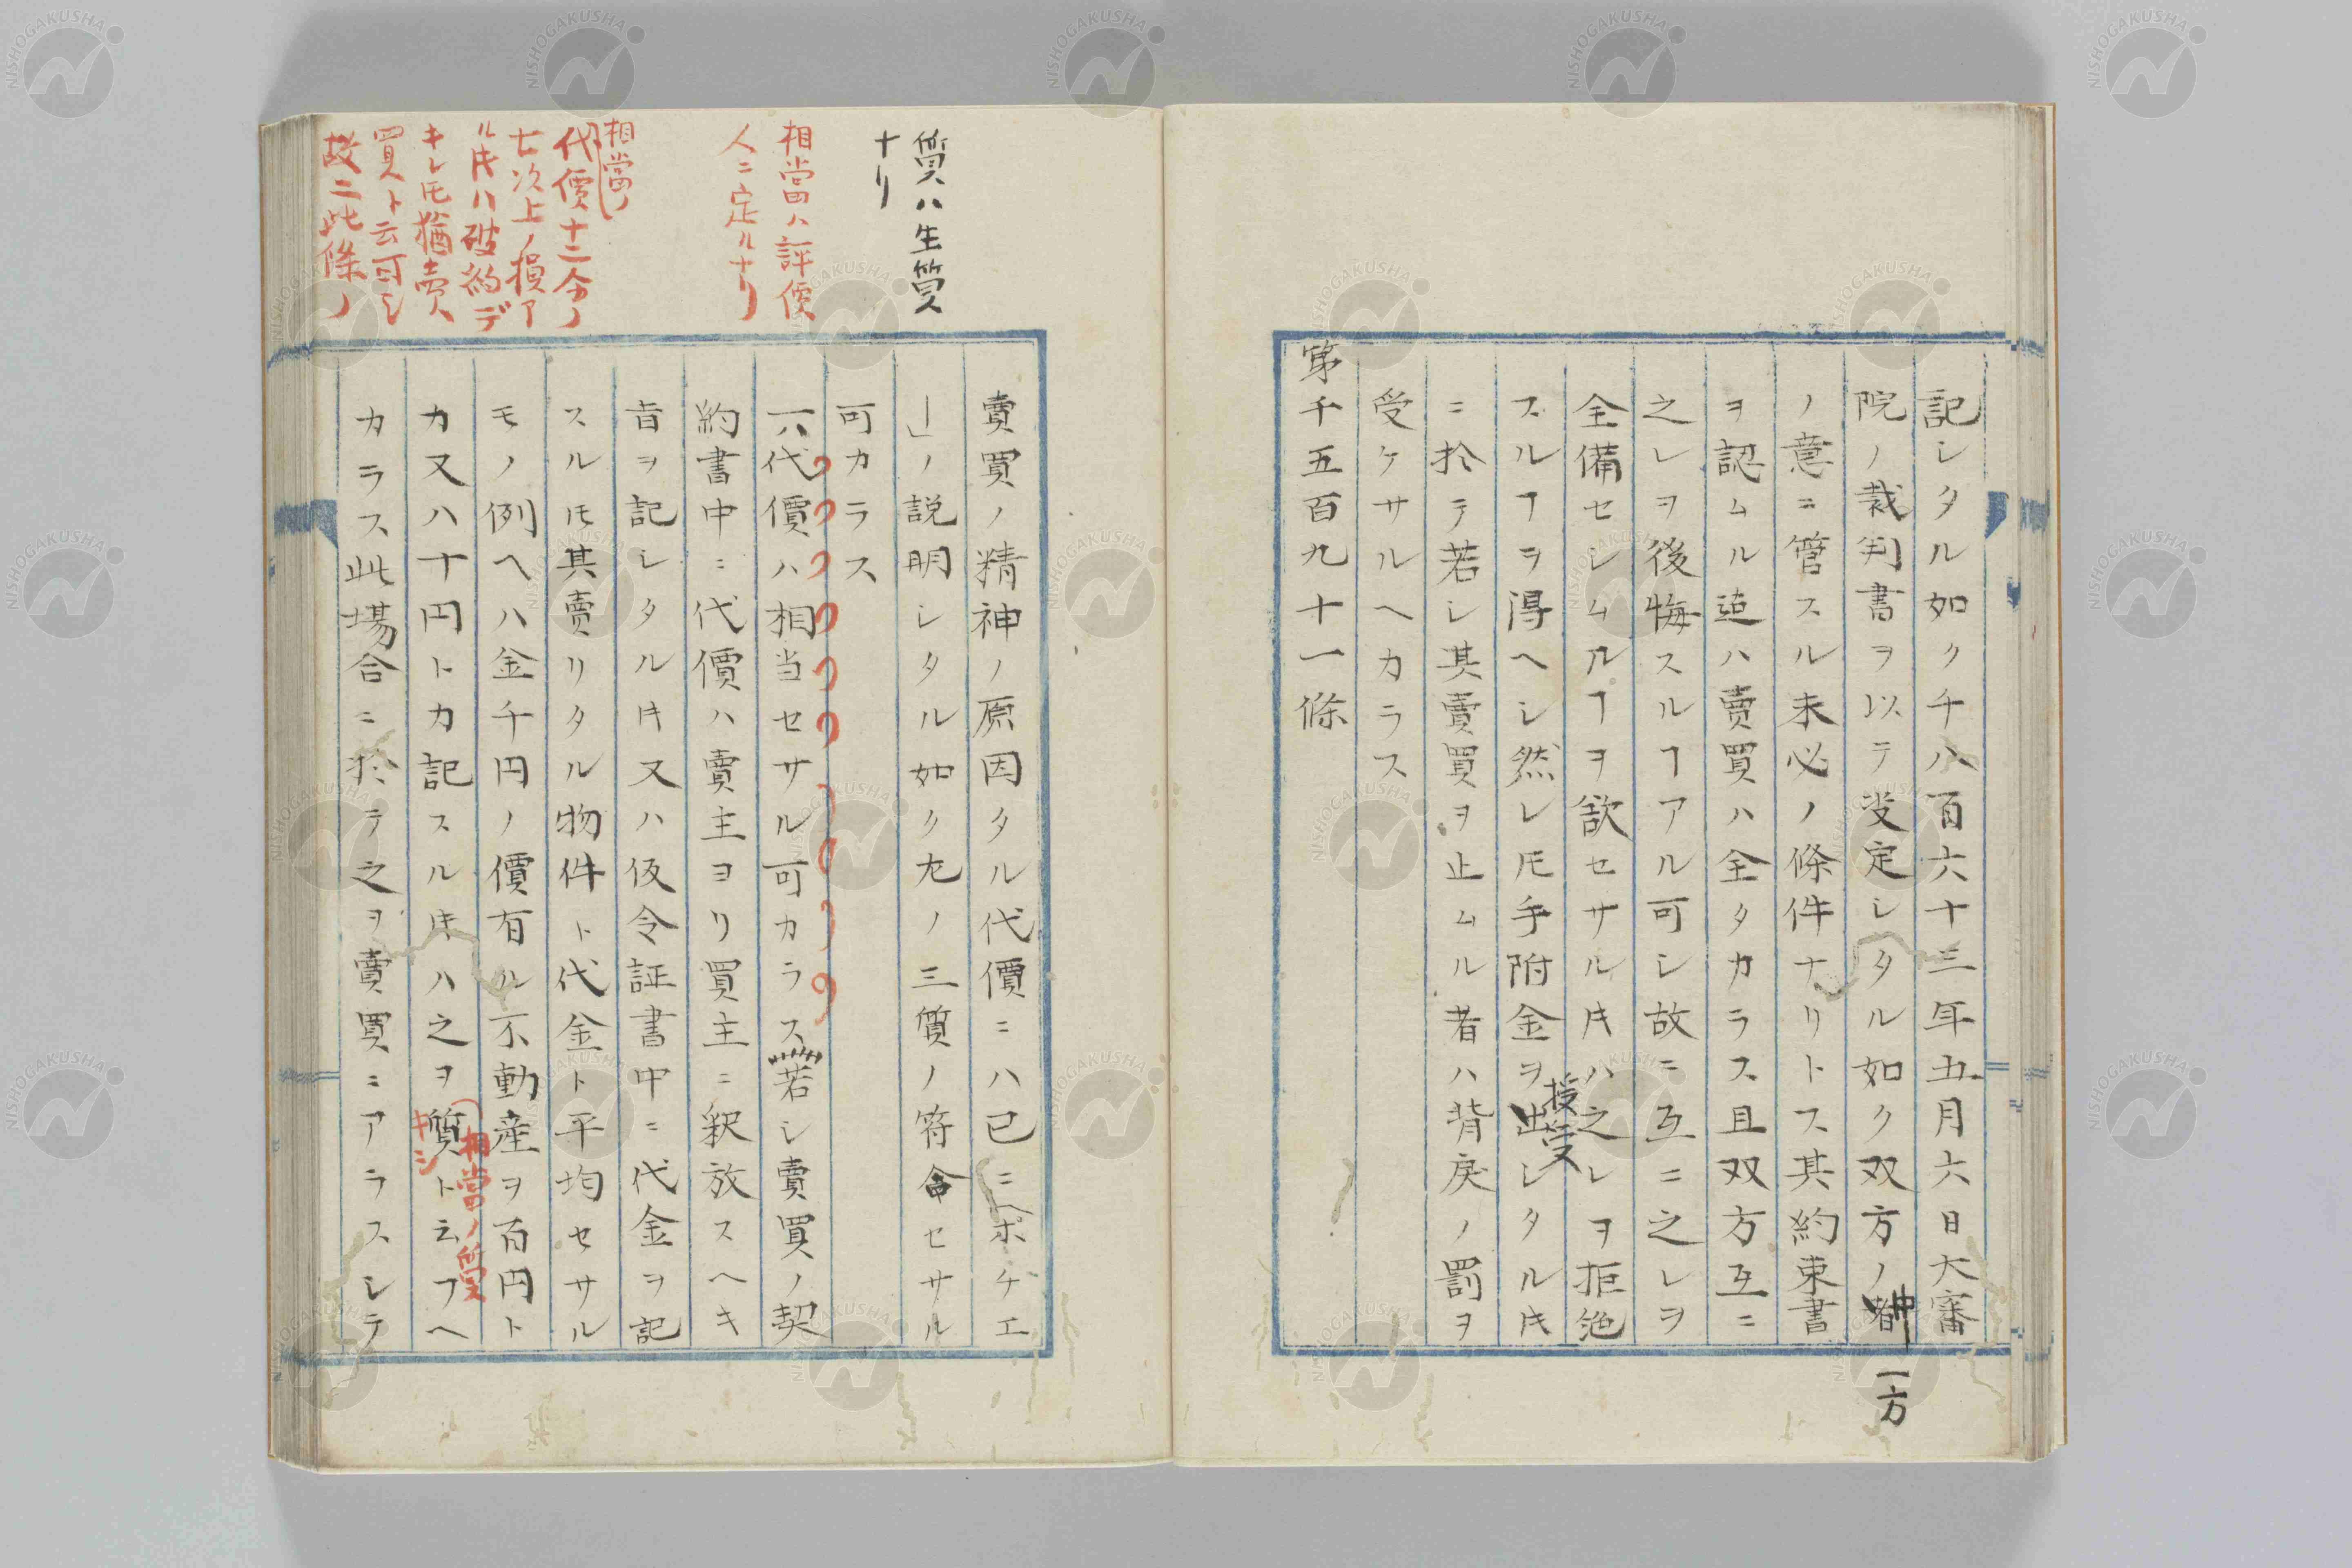 記シタル如ク千八百六十三年五月六日大審
院ノ裁判書ヲ以テ决定シタル如ク双方ノ中一方
ノ意ニ管スル未必ノ條件ナリトス其約束書
ヲ認ムル迠ハ賣買ハ全タカラス且双方互ニ
之レヲ後悔スルヿアル可シ故ニ互ニ之レヲ
全備セシムルヿヲ欲セサル𪜈ハ之レヲ拒絶
スルヿヲ得ヘシ然レ𪜈手附金ヲ授受シタル𪜈
ニ於テ若シ其賣買ヲ止ムル者ハ背戻ノ罰ヲ
受ケサルヘカラス
第千五百九十一條
質ハ生質
ナリ
相當ハ評價
人ニ定ルナリ
相當ノ
代價十二分ノ
七以上ノ損ア
ル𪜈ハ破約デ
キレ𪜈猶売
買ト云可シ
故ニ此條ノ
賣買ノ精神ノ原因タル代價ニハ已ニ「ポチエ
ー」ノ説明シタル如ク左ノ三質ノ符合セサル
可カラス
一代價ハ相当セサル可カラス若シ賣買ノ契
約書中ニ代價ハ賣主ヨリ買主ニ釈放スヘキ
旨ヲ記シタル𪜈又ハ仮令証書中ニ代金ヲ記
スルモ其賣リタル物件ト代金ト平均セサル
モノ例ヘハ金千円ノ價有ル不動産ヲ百円ト
カ又ハ十円トカ記スル𪜈ハ之ヲ質トシ云フヘ
相當ノ質
キシ
カラス此場合ニ於テ之ヲ賣買ニアラスシテ